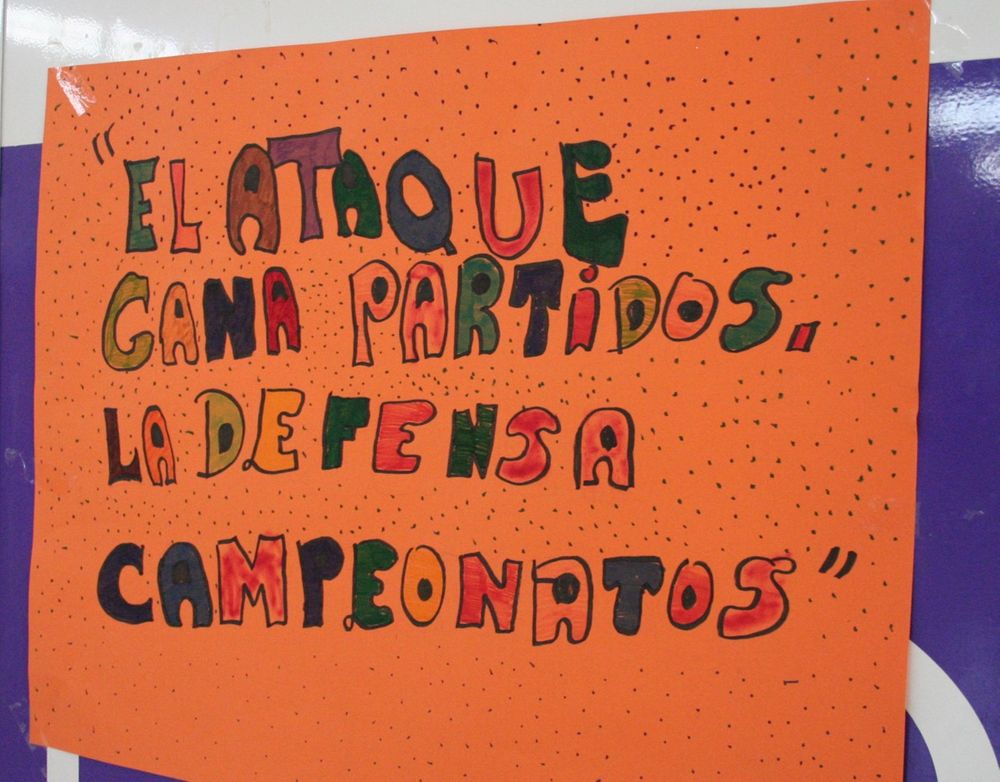 "EL ATAQUE
GANA PARTIDOS,
LA DEFENSA
CAMPEONATOS"